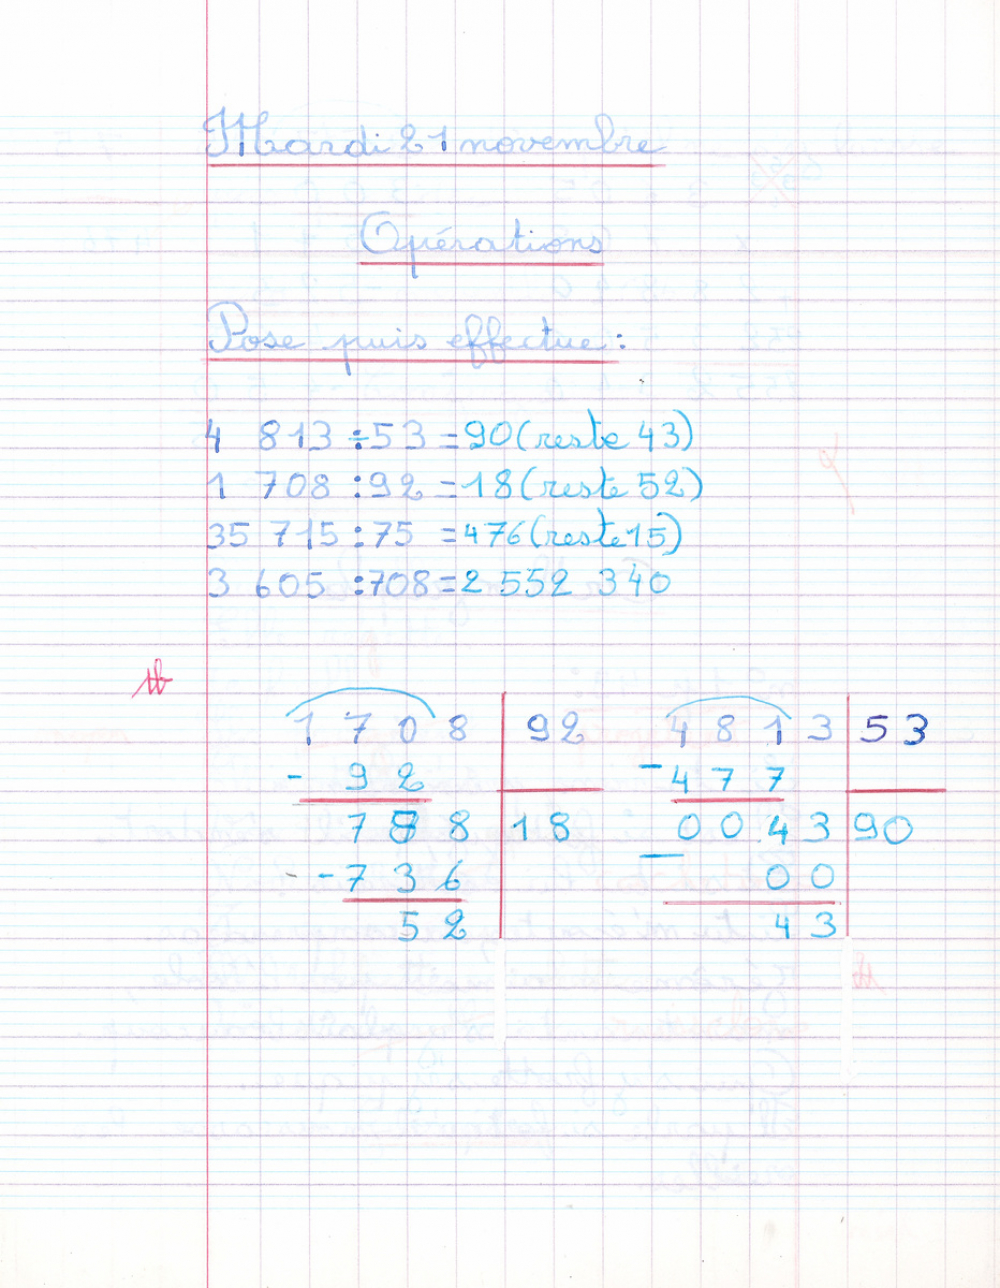 Mardi 21 novembre
Opérations
Pose puis effectue :
4 813 ÷ 53 = 90 (reste 43)
1 708 : 92 = 18 (reste 52)
35 715 : 75 = 476 (reste 15)
3 605 : 708 = 2 552 340
tb
1 7 0 8 92
- 9 2
7 8 8 18
- 7 3 6
5 2
4 8 1 3 53
- 4 7 7
0 0 4 3 90
- 0 0
4 3